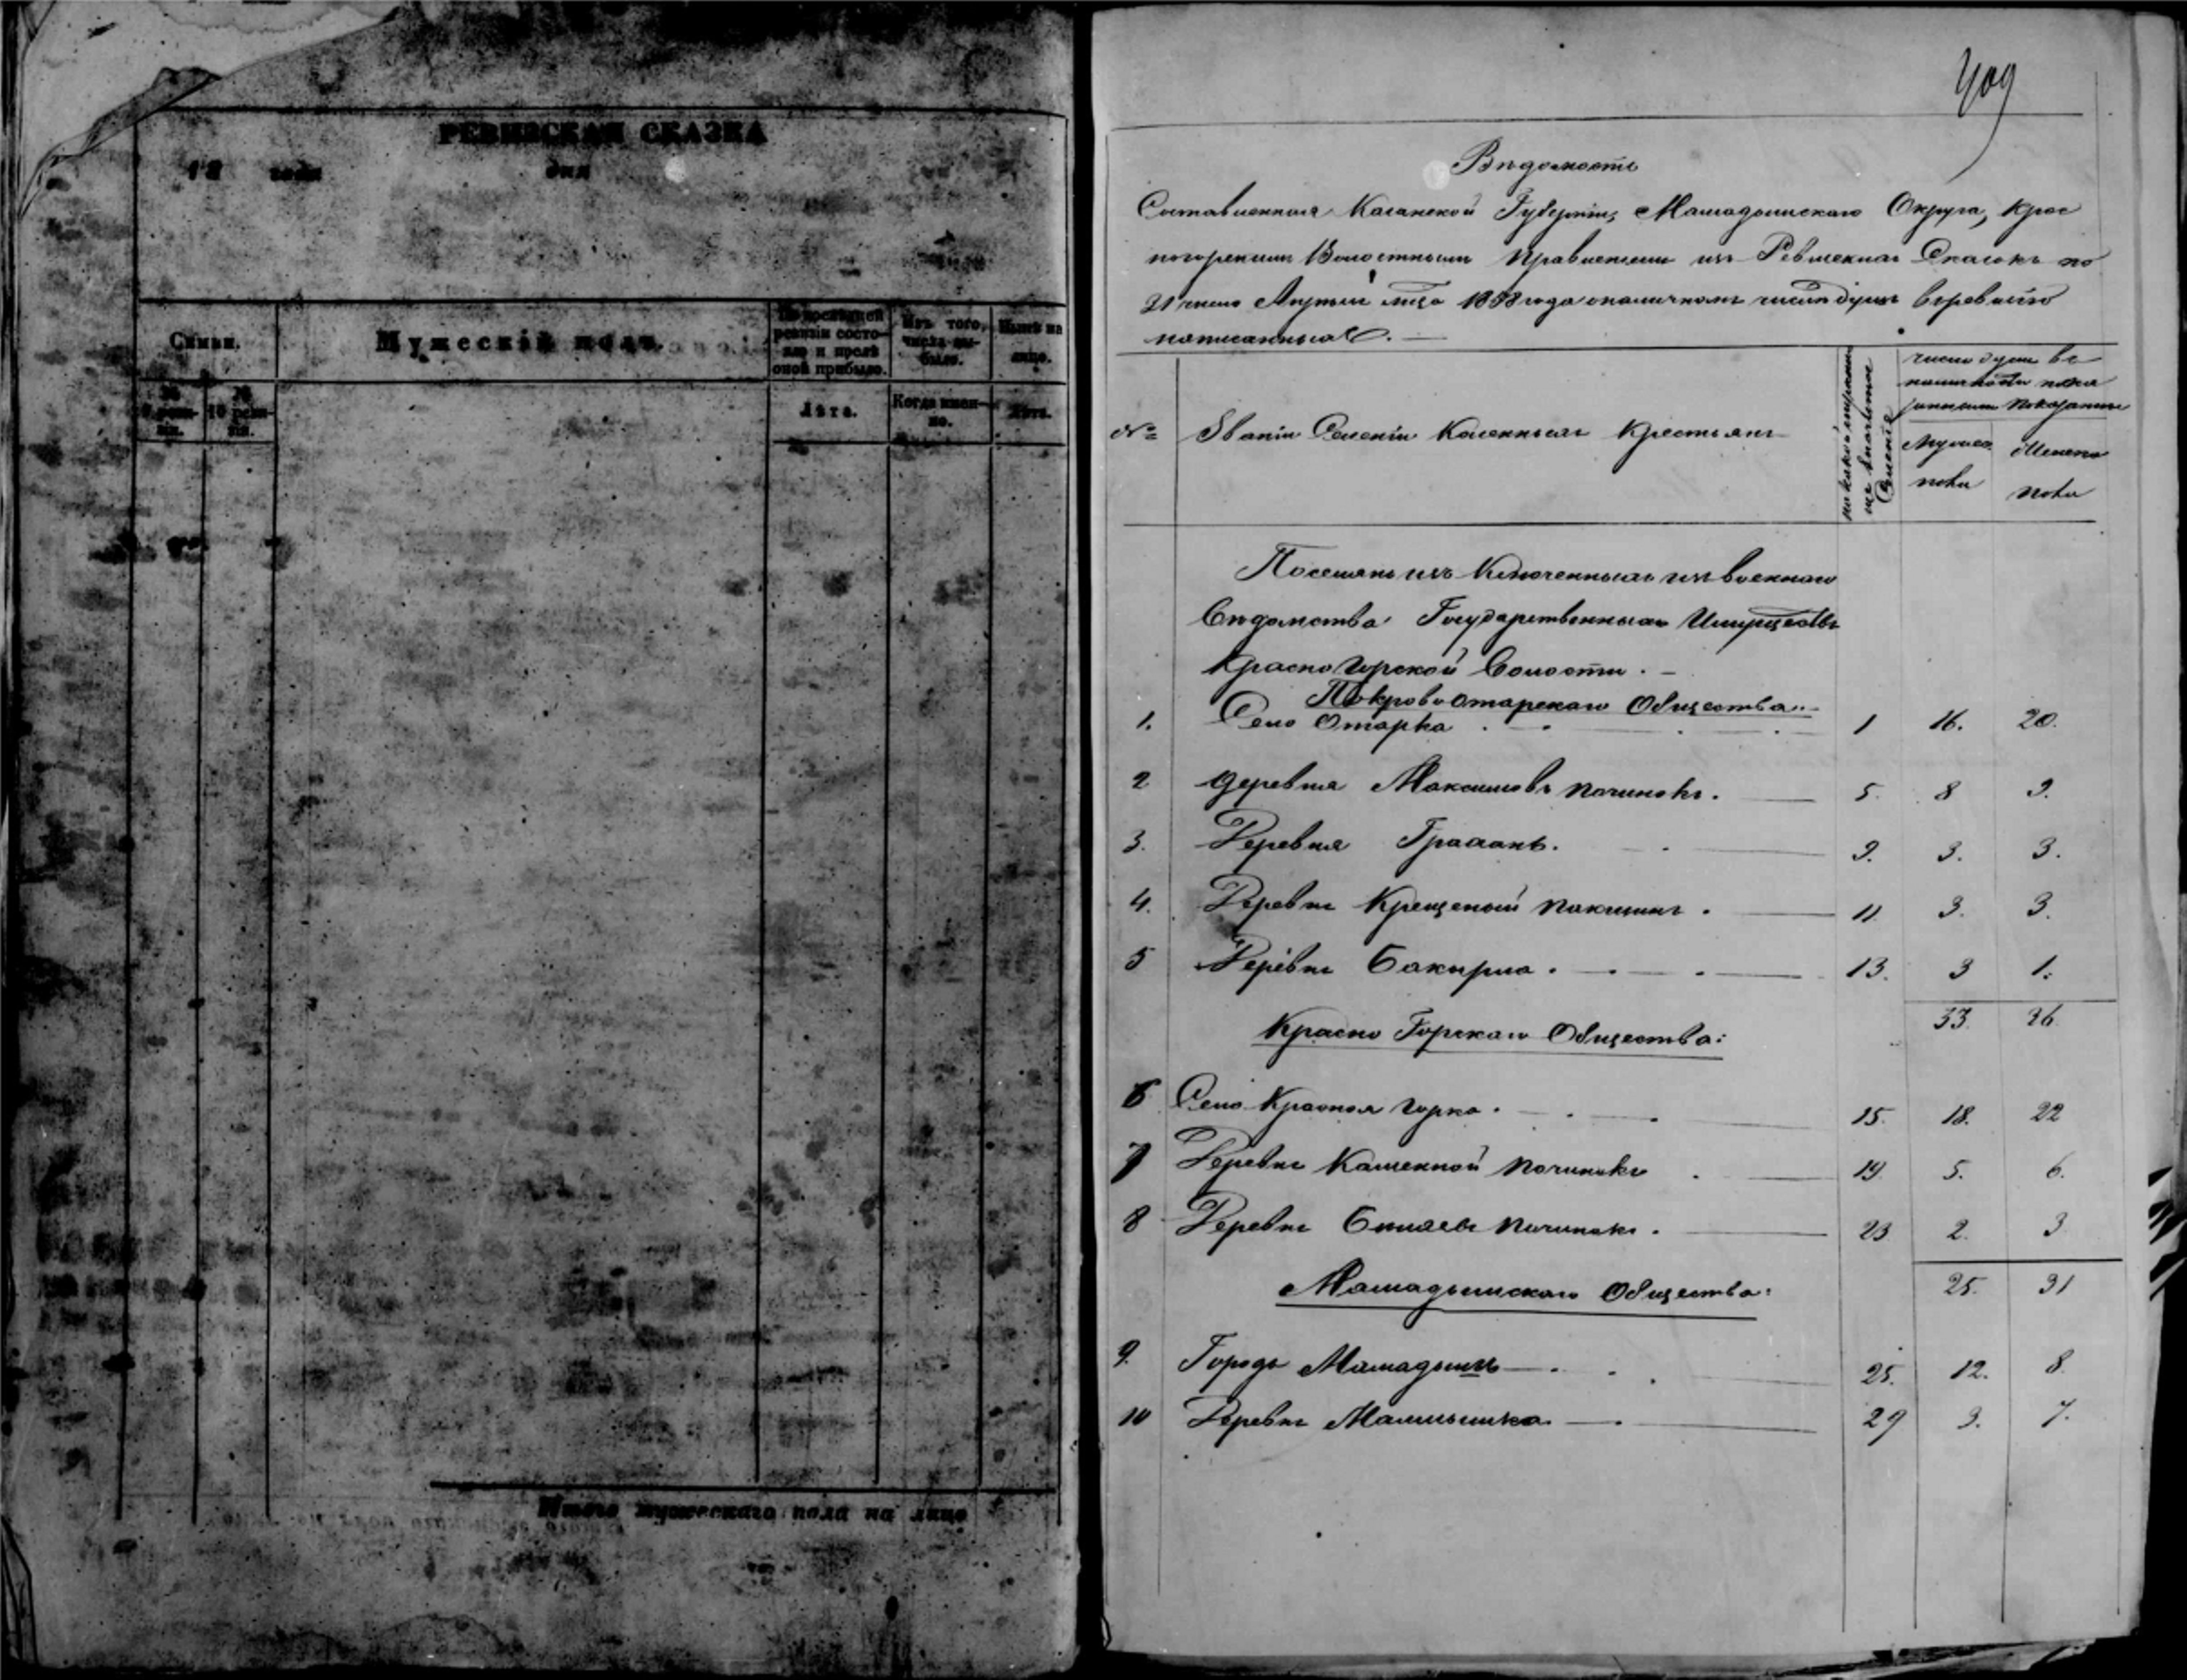 РЕВИЗСКАЯ СКАЗКА
18 года дня
Семьи.
Мужескій полъ.
По послѣдней ревизіи состояло и послѣ оной прибыло.
Изъ того, числа выбыло.
Нынѣ на лицо.
№ ревизіи.
№ 10 ревизіи.
Лѣта.
Когда именно.
Лѣта.
Итого мужескаго пола на лицо
409
Вѣдомость
Составленная Казанской Губерніи, Мамадышскаго Округа, Крас
ногорскимъ Волостнымъ Правленіемъ изъ Ревизскихъ Сказокъ по
21 число Апрѣля 1858 года о наличномъ числѣ душъ
написанныхъ.
№
Званіи Селеніи Казенныхъ Крестьянъ
число душъ въ
показаны
Мужеска
пола
Женска
пола
Поселянъ изъ военнаго
Вѣдомства Государственныхъ Имуществъ
Красно Горской Волости.
Покрово Отарскаго Общества.
1. Село Отарка 1 16. 20.
2 Деревня Максимовъ Починокъ. 5. 8 9.
3. Деревня Граханъ. 9. 3. 3.
4. Деревня Крещеный Пакшинъ. 11. 3. 3.
5 Деревня 13. 3 1.
33. 26.
Красно Горскаго Общества:
6 Село Красная Горка. 15. 18. 22
7 Деревня Каменной Починокъ 19. 5. 6.
8 Деревня Починокъ. 23. 2. 3
25. 31
Мамадышскаго Общества:
9. Городъ Мамадышъ 25. 12. 8.
10 Деревня 29 9. 7.